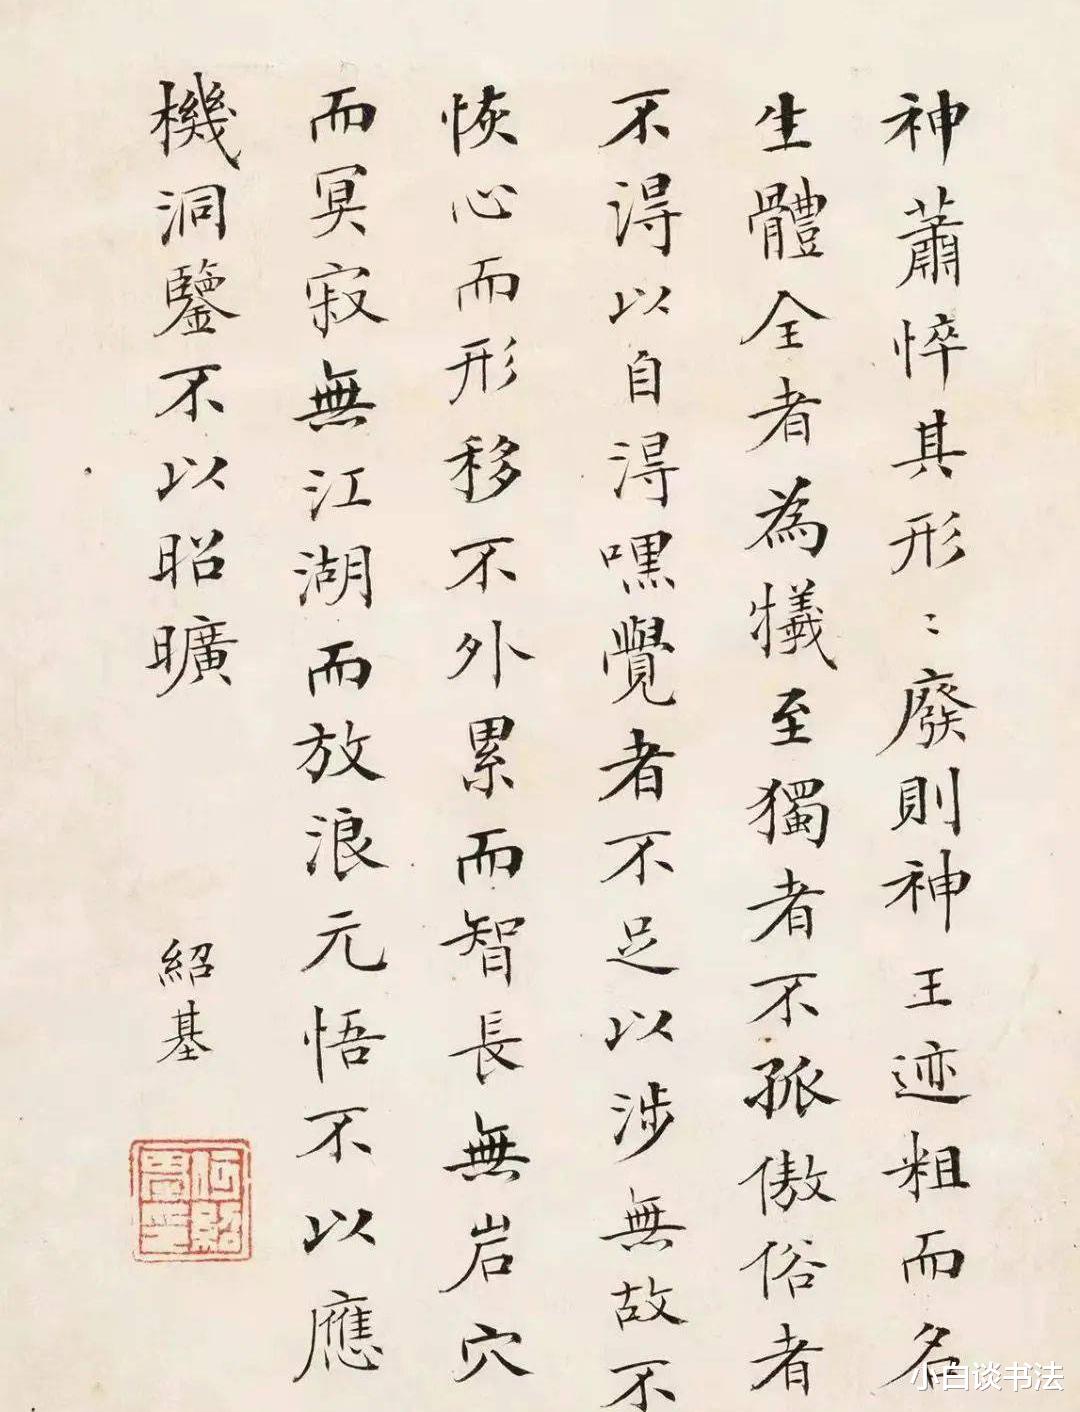 神蕭悴其形〻廢則神王迹粗而名
生體全者為犠至獨者不孤傲俗者
不得以自得嘿覺者不足以涉無故不
恢心而形移不外累而智長無岩穴
而冥寂無江湖而放浪元悟不以應
機洞鑒不以昭曠
紹基
小白谈书法